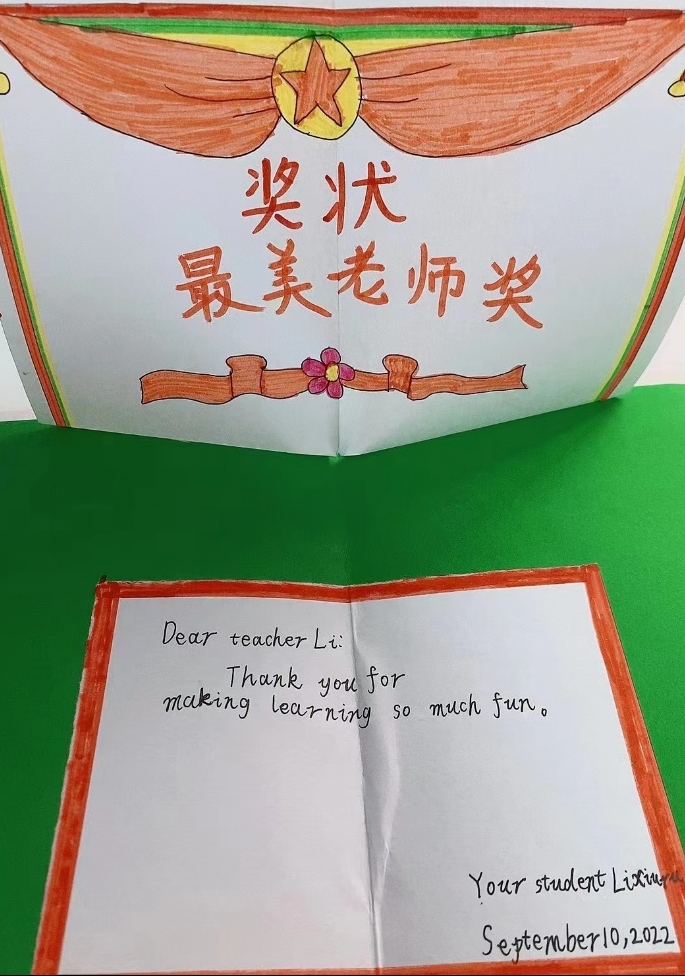 奖状
最美老师奖
Dear teacher Li:
Thank you for
making learning so much fun。
Your student
September 10, 2022